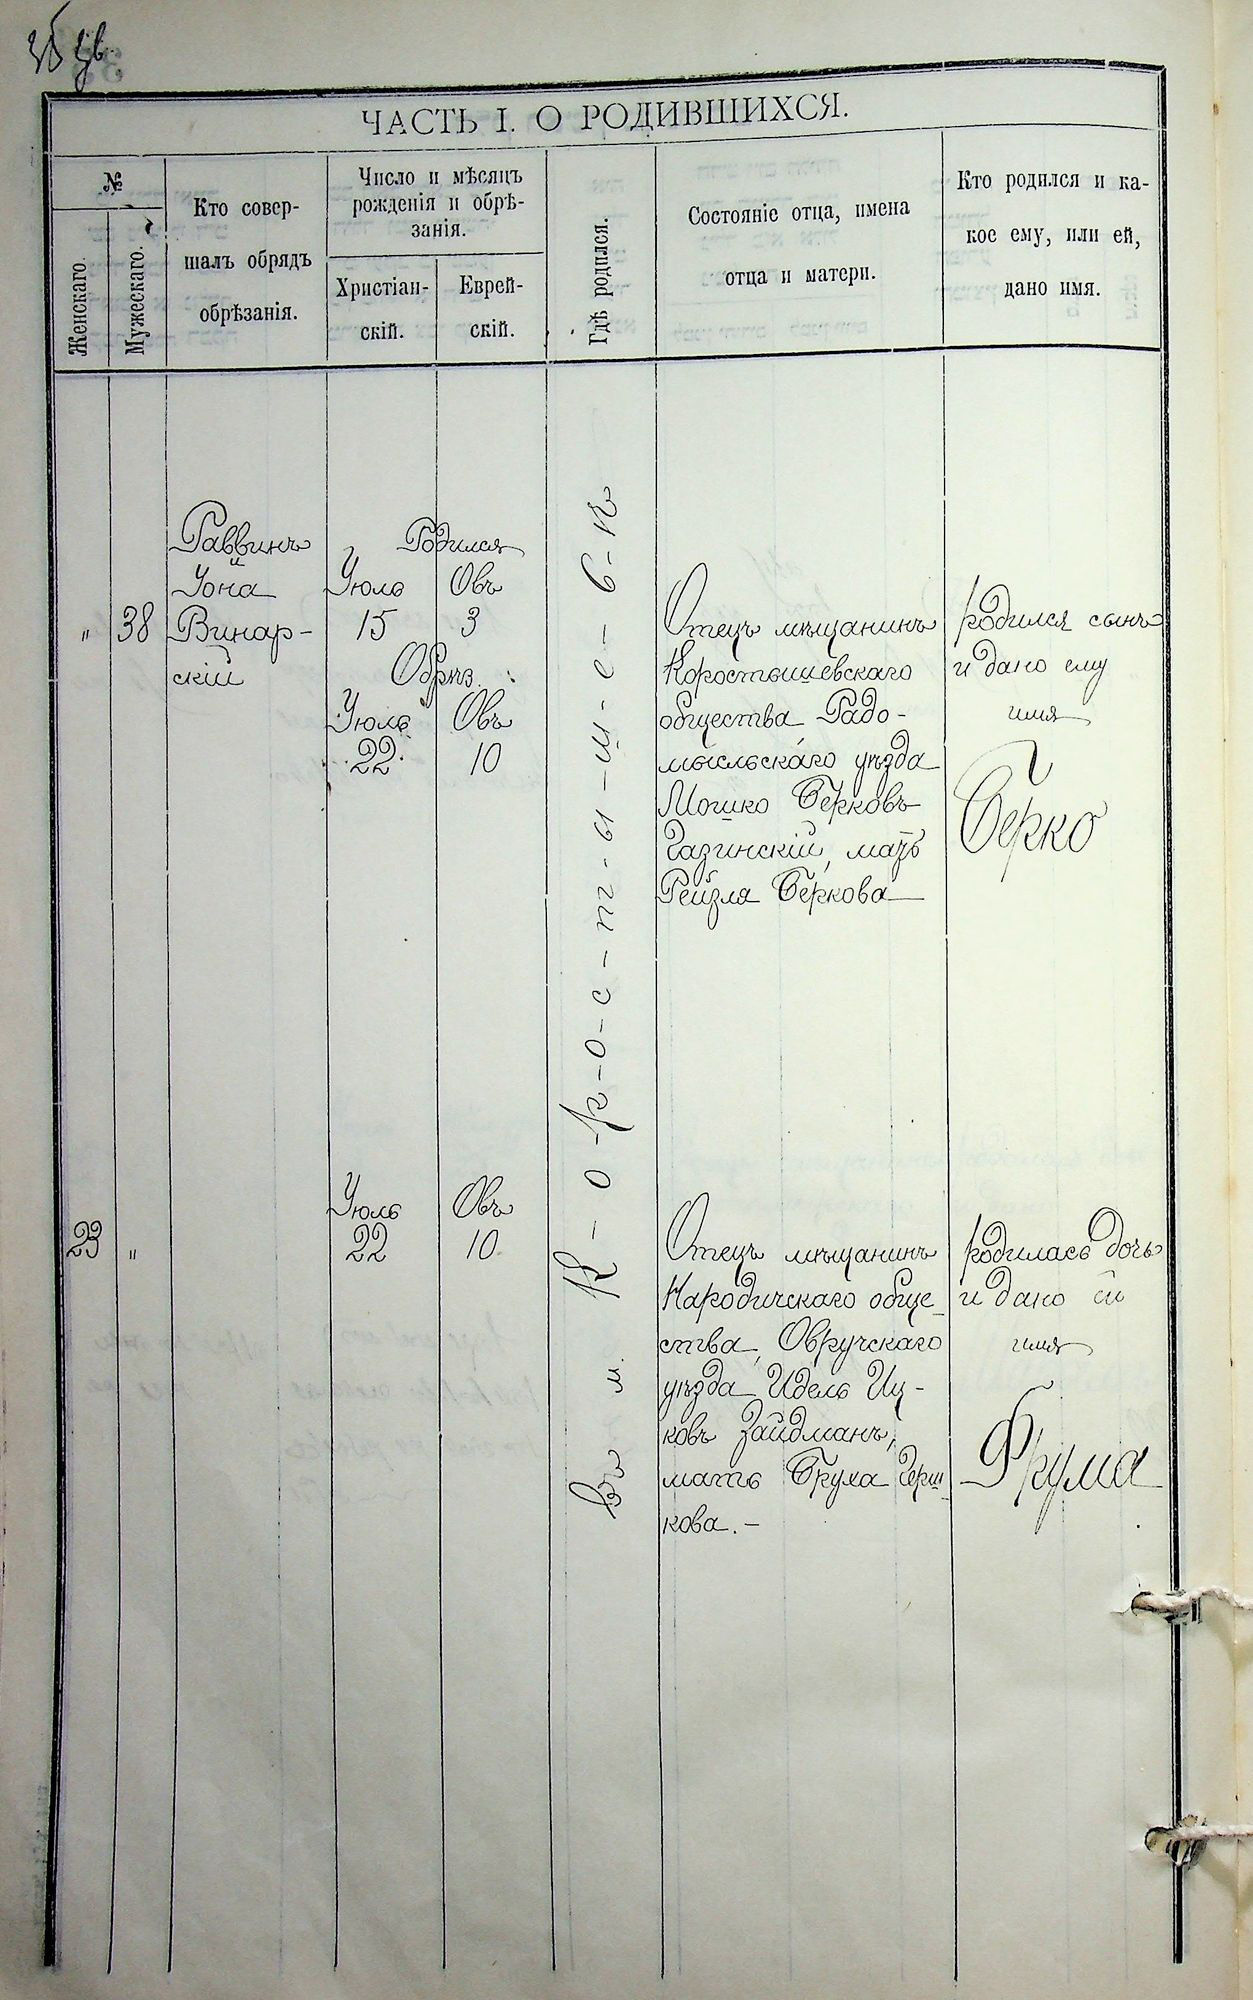 ЧАСТЬ I. О РОДИВШИХСЯ.
№
Женскаго.
Мужескаго.
Кто совер-
шалъ обрядъ
обрѣзанія.
Число и мѣсяцъ
рожденія и обрѣ-
занія.
Христіан-
скій.
Еврей-
скій.
Гдѣ родился.
Состояніе отца, имена
отца и матери.
Кто родился и ка-
кое ему, или ей,
дано имя.
"
38
Раввинъ
Іона
Винар-
скій
Родился
Іюль Овъ
15 3
Обрѣз.
Іюль Овъ
22 10
Въ м. К-о-р-о-с-т-ы-ш-е-в-ѣ
Отецъ мѣщанинъ
Коростышевскаго
общества Радо-
мысльскаго уѣзда
Мошко Берковъ
Газинскій, мать
Рейзля Беркова
родился сынъ
и дано ему
имя
Берко
23
"
Іюль Овъ
22 10
Отецъ мѣщанинъ
Народичскаго обще-
ства, Овручскаго
уѣзда Идель Иц-
ковъ Зайдманъ,
мать Бруха Герш-
кова.-
родилась дочь
и дано ей
имя
Фрума